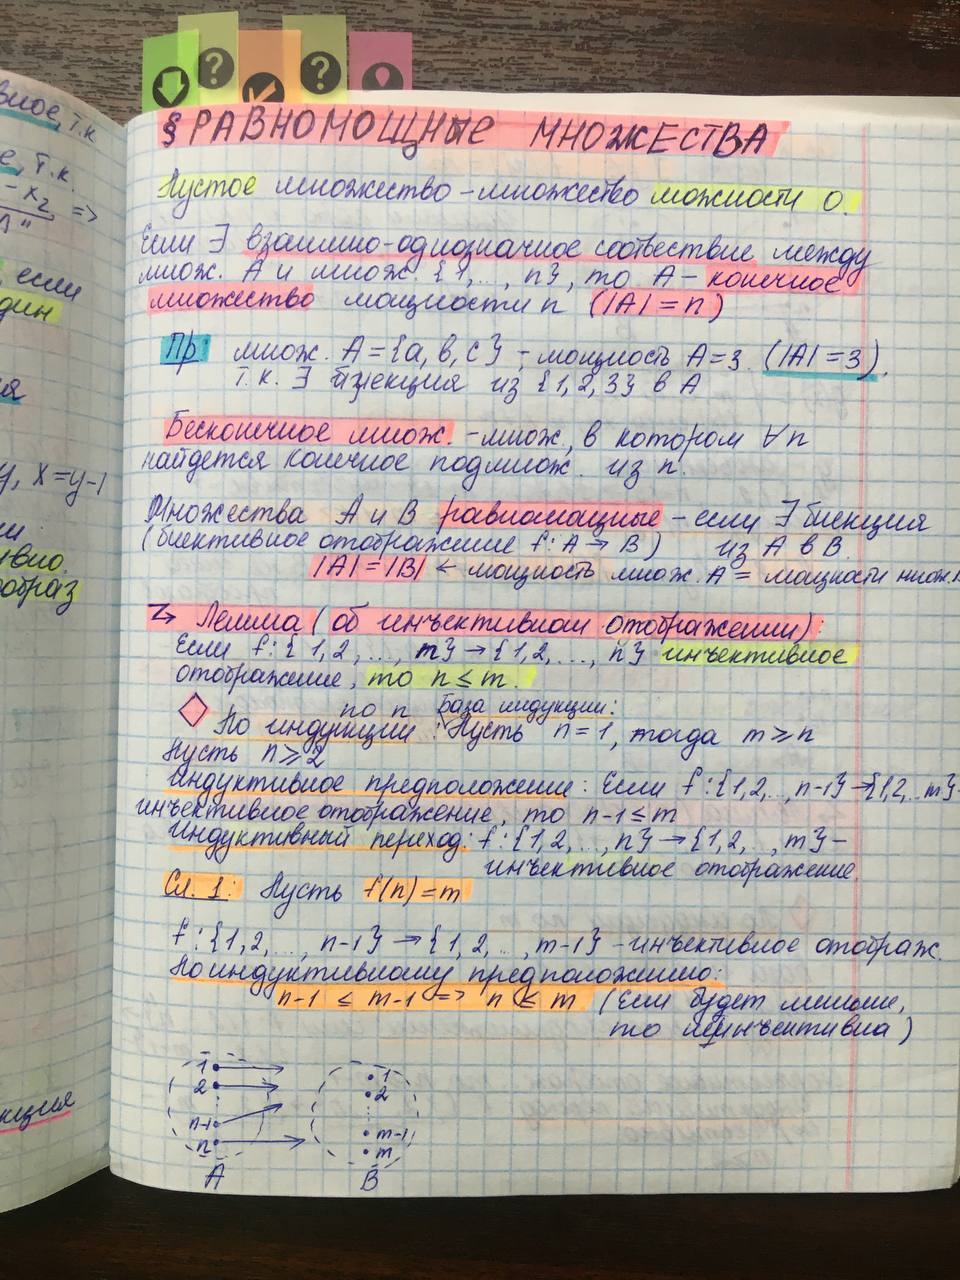 вное, т.к
е, т.к.
- x₂ =>
"
если
дин
ия
у, x=y-1
ии
ивно,
образ
кция
§ РАВНОМОЩНЫЕ МНОЖЕСТВА
Пустое множество - множество можности 0.
Если ∃ взаимно-однозначное соотвествие между
множ. A и множ {1,..., n}, то A - конечное
множество мощности n (|A| = n)
Пр: множ. A = {a, b, c} - мощность A = 3. (|A| = 3).
т.к. ∃ биекция из {1, 2, 3} в A
Бесконечное множ. - множ, в котором ∀n
найдется конечное подмнож. из n.
Множества A и B равномощные - если ∃ биекция
(биективное отображение f: A → B) из A в B.
|A| = |B| ← мощность множ. A = мощности множ.
Лемма (об инъективном отображении):
Если f: {1, 2, ..., m} → {1, 2, ..., n} инъективное
отображение, то n ≤ m.
по n База индукции:
По индукции: Пусть n = 1, тогда m ≥ n
Пусть n ≥ 2
Индуктивное предположение: Если f: {1, 2, .., n-1} → {1,2,..m} -
инъективное отображение, то n-1 ≤ m
Индуктивный переход: f: {1, 2, ..., n} → {1, 2, ..., m} -
инъективное отображение.
Сл. 1: Пусть f(n) = m
f: {1, 2, ..., n-1} → {1, 2, ..., m-1} - инъективное отображ.
По индуктивному предположению:
n-1 ≤ m-1 => n ≤ m (Если будет меньше,
то инъективна)
1
2
n-1
n
A
1
2
m-1
m
B